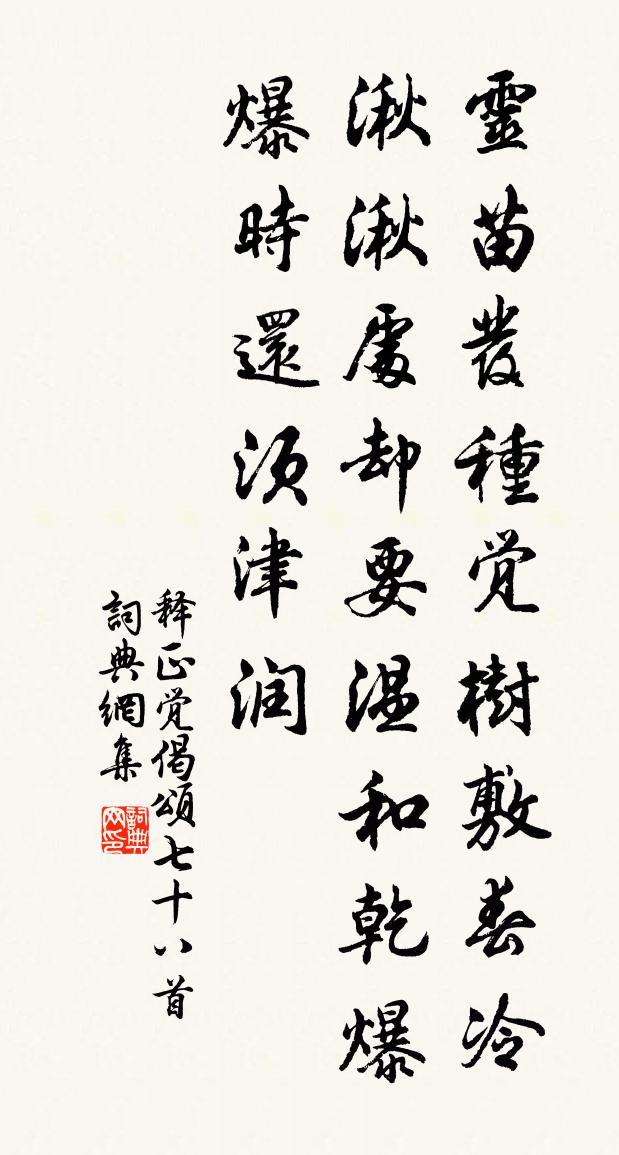 靈苗發種覺樹敷春冷
湫湫處却要温和乾爆
爆時還須津润
释正觉偈頌七十八首
詞典網集
詞典网印